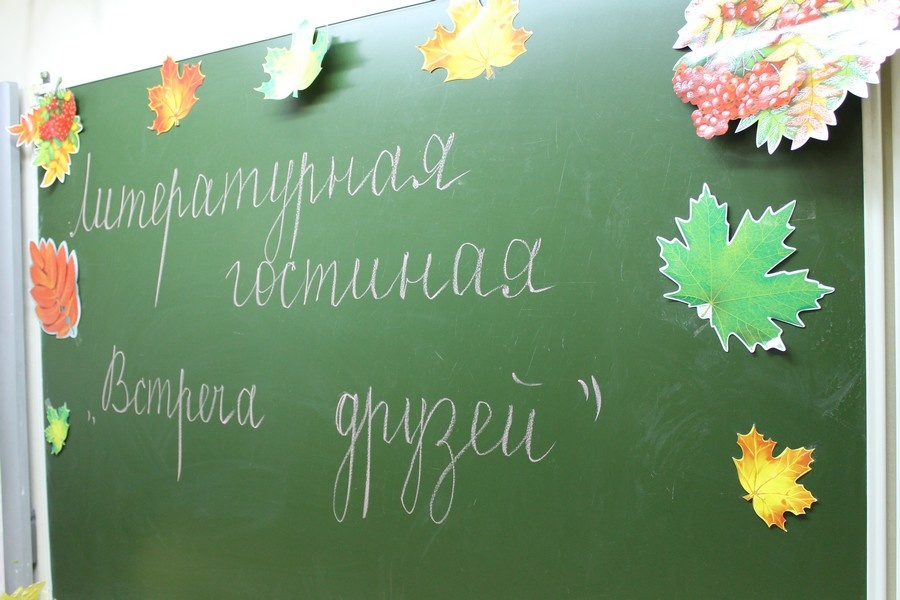 Литературная
гостиная
„Встреча друзей"